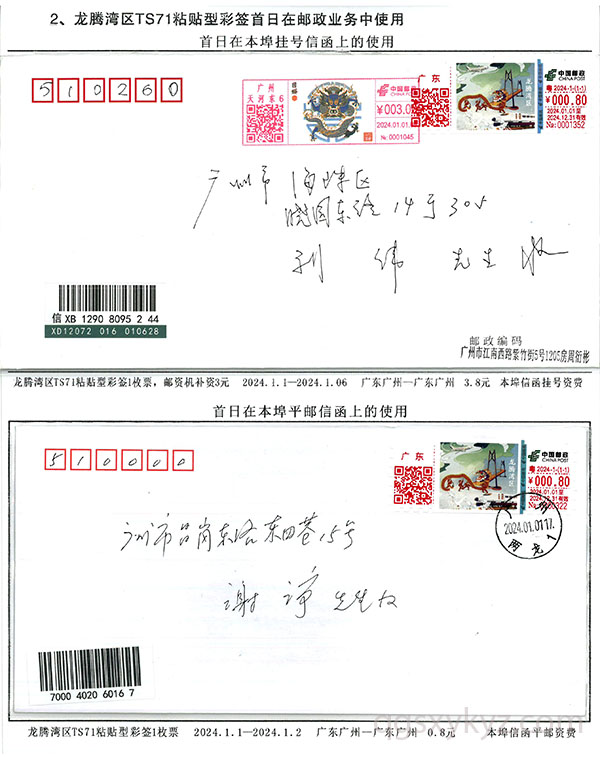 2、龙腾湾区TS71粘贴型彩签首日在邮政业务中使用
首日在本埠挂号信函上的使用
510260
广州
天河东6
中国邮政
CHINA POST
¥003.0
2024.01.01
№ 0001045
广东
龙腾湾区
中国邮政
CHINA POST
粤 2024-1-(1-1)
¥000.80
2024.01.01至
2024.12.31有效
No:0001352
广州市 海珠区
晓园东路 14号 305
刘 伟 先生 收
信 XB 1290 8095 2 44
XD12072 016 010628
邮政编码
广州市江南西路紫竹街5号1205房周衍彬
龙腾湾区TS71粘贴型彩签1枚票，邮资机补资3元 2024.1.1—2024.1.06 广东广州—广东广州 3.8元 本埠信函挂号资费
首日在本埠平邮信函上的使用
510000
广东
龙腾湾区
中国邮政
CHINA POST
粤 2024-1-(1-1)
¥000.80
2024.01.01至
2024.12.31有效
2024.01.01 17
广州市
东路东田巷15号
谢 先生收
7000 4020 6016 7
龙腾湾区TS71粘贴型彩签1枚票 2024.1.1—2024.1.2 广东广州—广东广州 0.8元 本埠信函平邮资费
qgsxykyz.com